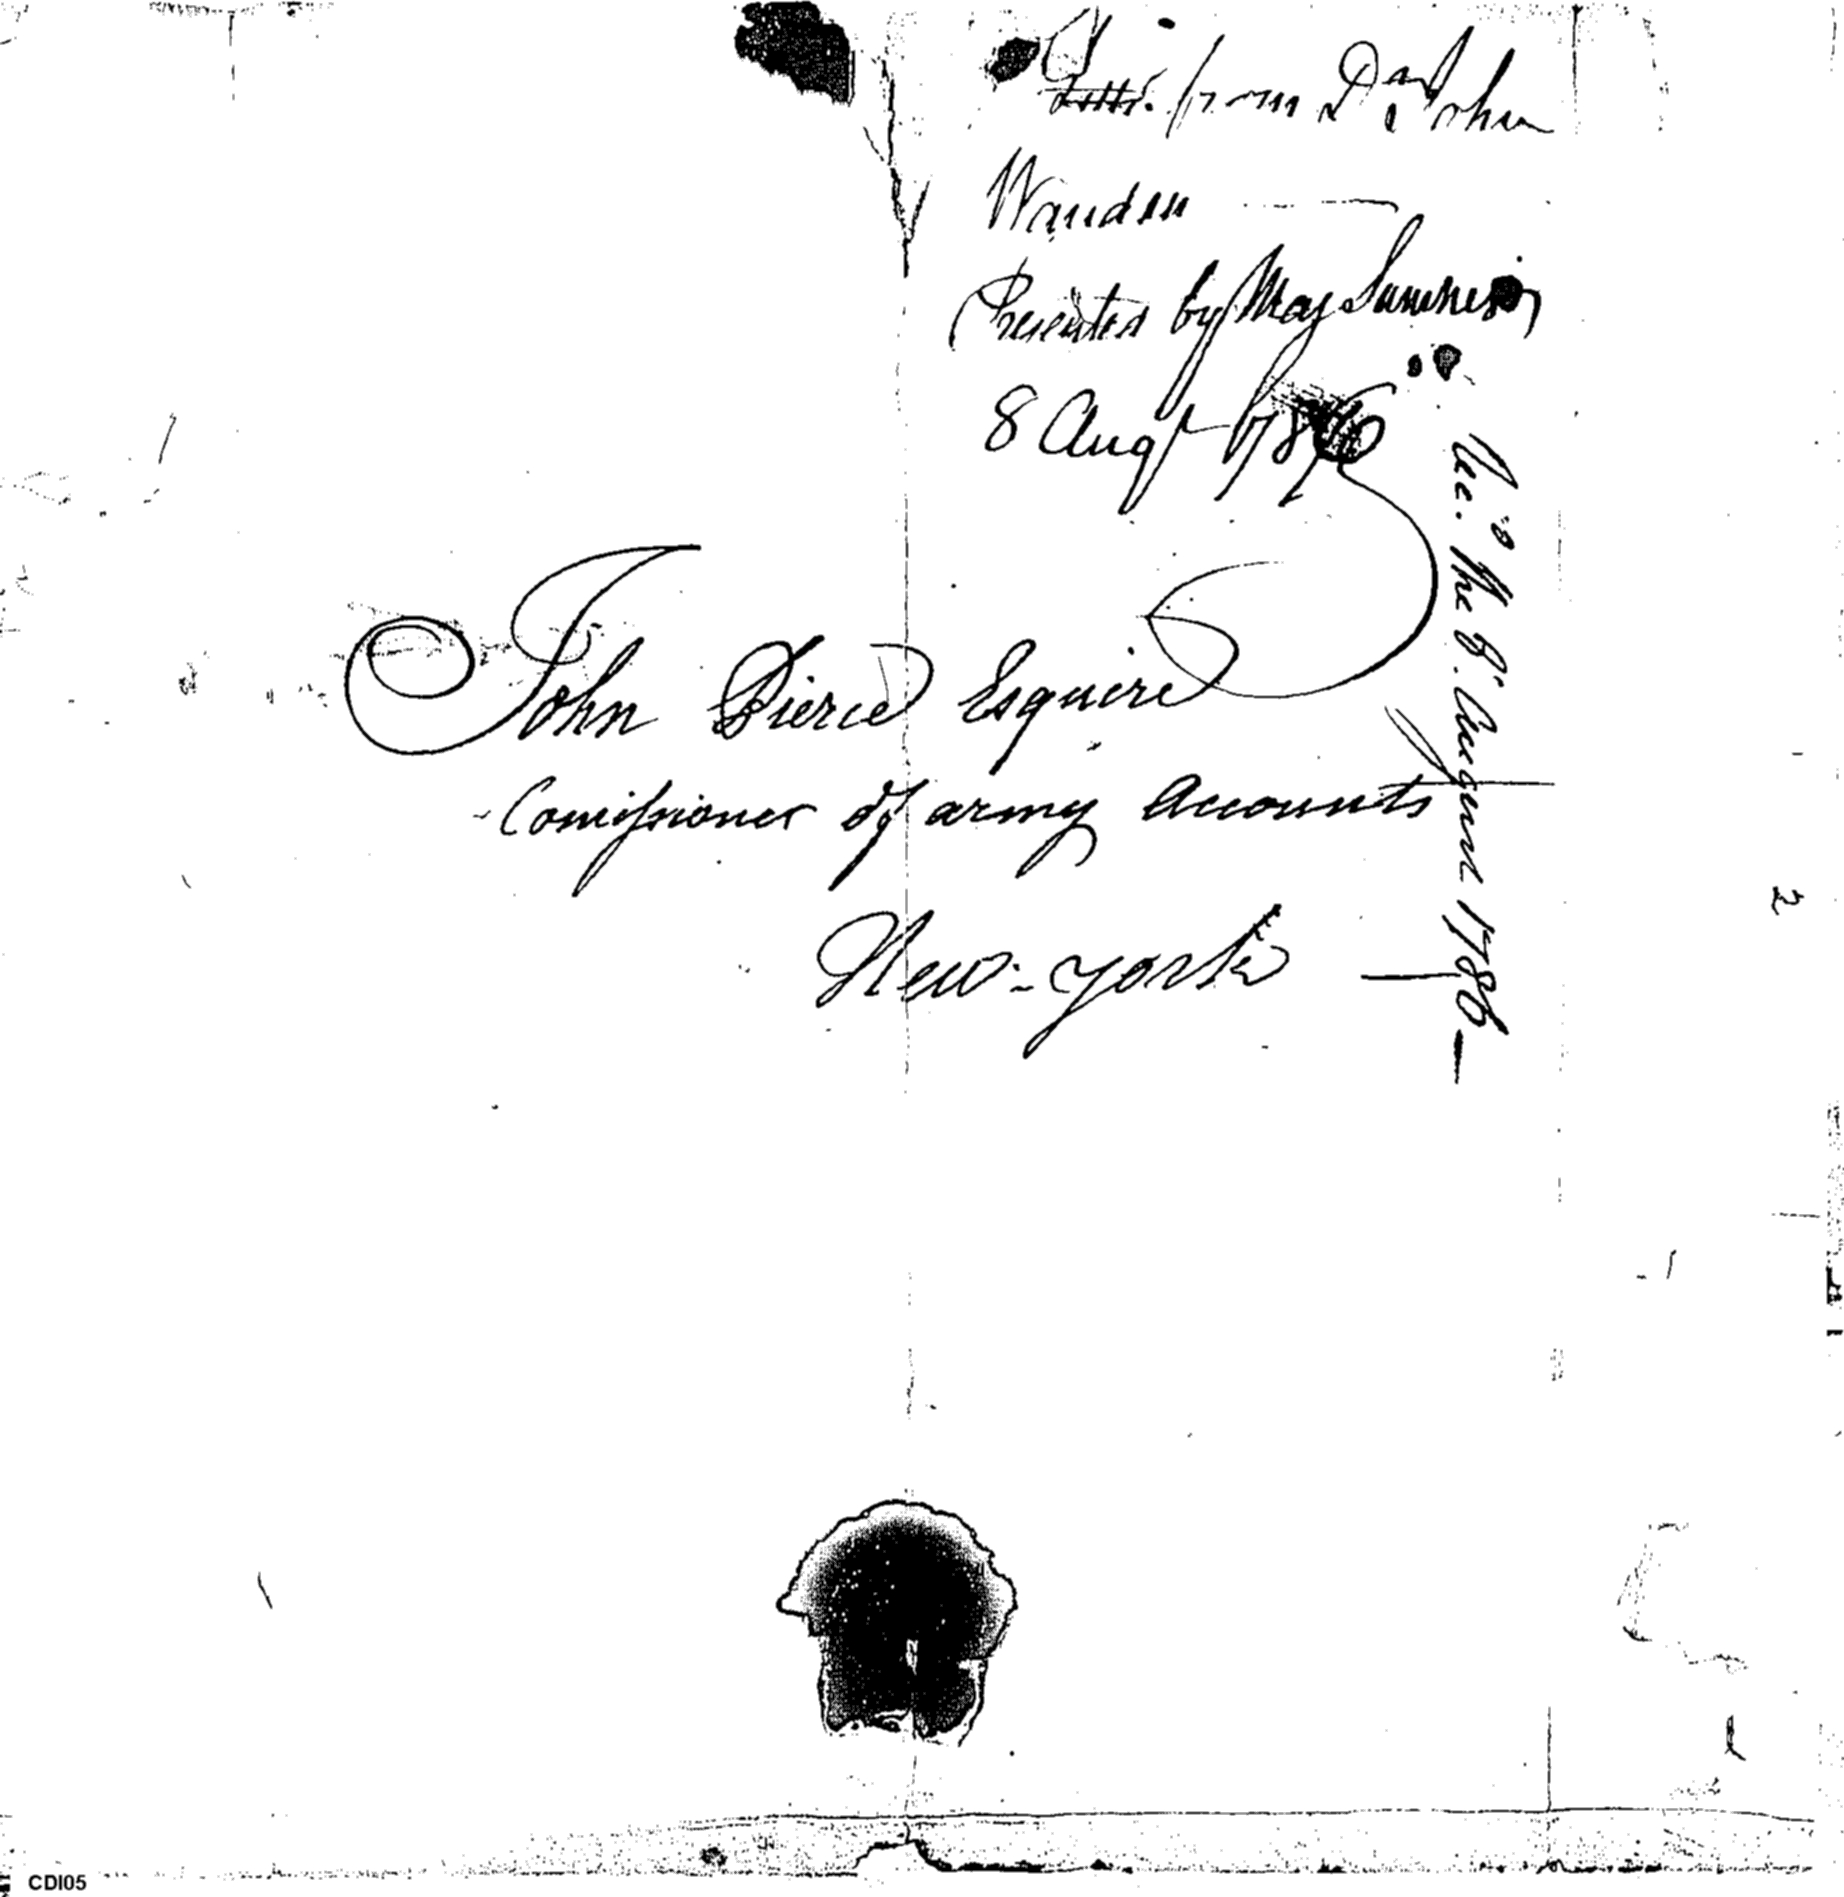 from Dr John
Presented by Maj
8 Augt 1786
John Pierce Esquire
Comissioner of army Accounts
New-York
Rec.d the 8. August 1786
2
CDI05